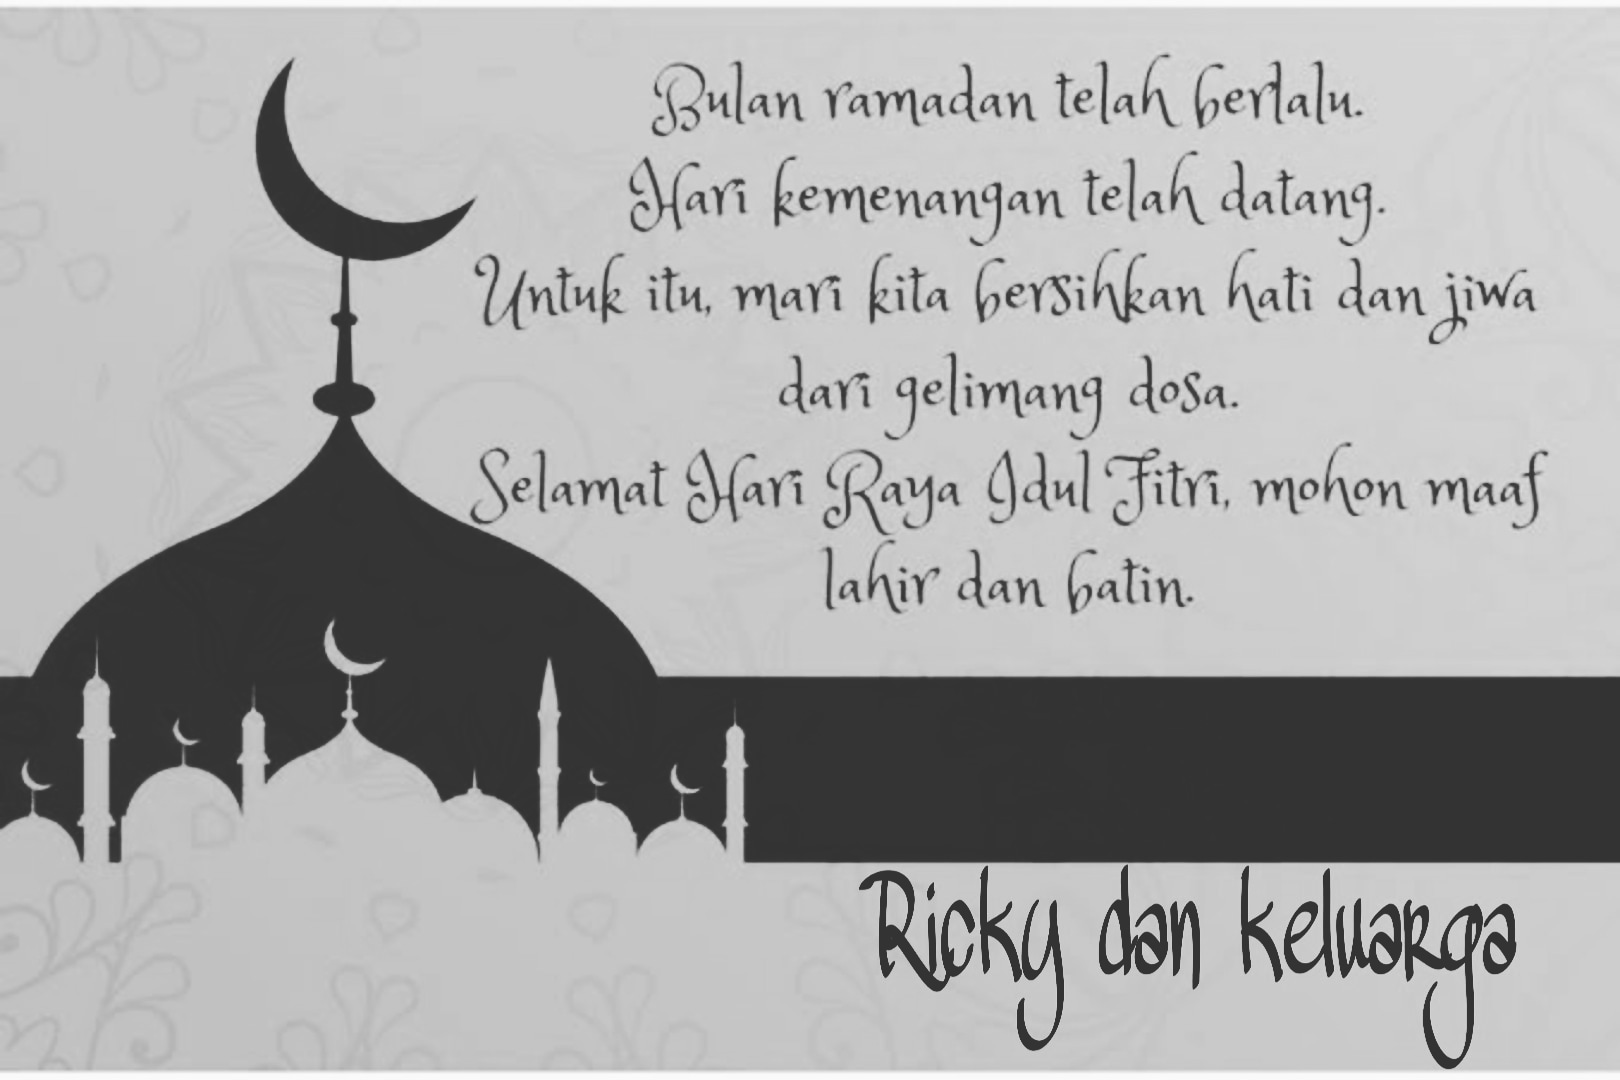 Bulan ramadan telah berlalu.
Hari kemenangan telah datang.
Untuk itu, mari kita bersihkan hati dan jiwa
dari gelimang dosa.
Selamat Hari Raya Idul Fitri, mohon maaf
lahir dan batin.
Ricky dan keluarga